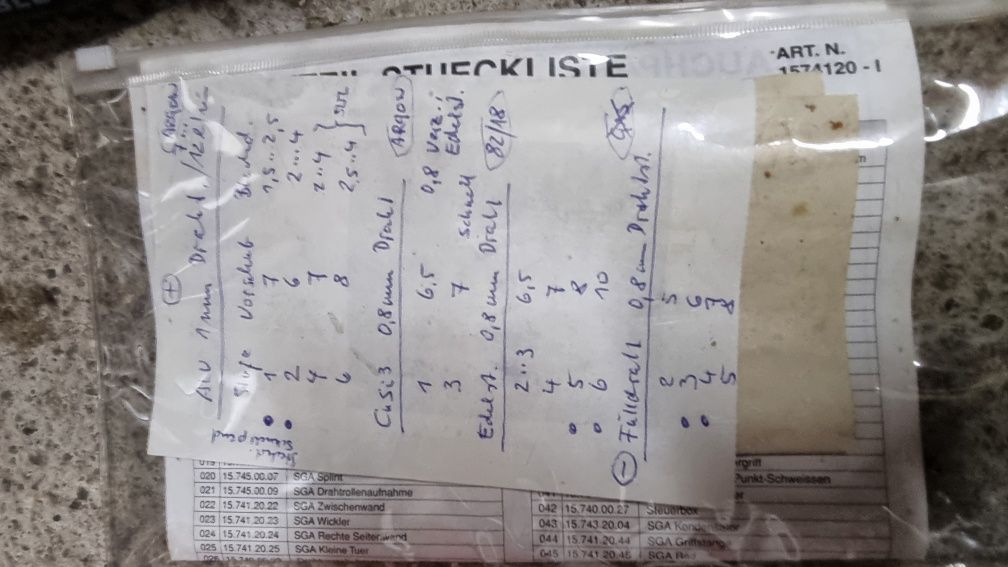 STUECKLISTE
ART. N.
1574120 - I
Argon
+
Alu 1mm Draht
Stufe Vorschub
1 7 1,5...2,5
2 6 2...4
4 7 2...4
6 8 2,5..4
CuSi3 0,8mm Draht Argon
1 6,5 0,8 verz.
3 7 schnell Edelst.
Edelst. 0,8mm Draht 82/18
2..3 6,5
4 7
5 8
6 10
- Fülldraht 0,8mm Drahtst.
2 5
3 6
4 7
5 8
020 15.745.00.07 SGA Splint
021 15.745.00.09 SGA Drahtrollenaufnahme
022 15.741.20.22 SGA Zwischenwand
023 15.741.20.23 SGA Wickler
024 15.741.20.24 SGA Rechte Seitenwand
025 15.741.20.25 SGA Kleine Tuer
Punkt-Schweissen
042 15.740.00.27 Steuerbox
043 15.743.20.04 SGA Kondensator
044 15.741.20.44 SGA Griffstange
045 15.741.20.45 SGA Rad